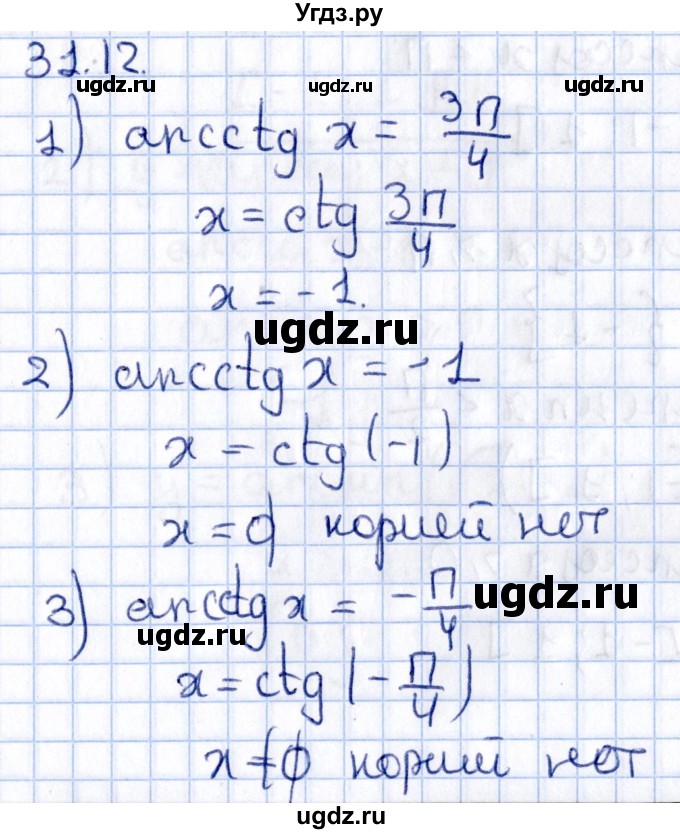 Угдз.ру
31.12.
ugdz.ru ugdz.ru ugdz.ru
1) arcctg x = 3π/4
x = ctg 3π/4
x = -1.
ugdz.ru
2) arcctg x = -1
x = ctg (-1)
x = ∅ корней нет
3) arcctg x = -π/4
ugdz.ru
ugdz.ru
x = ctg (-π/4)
x = ∅ корней нет
ugdz.ru